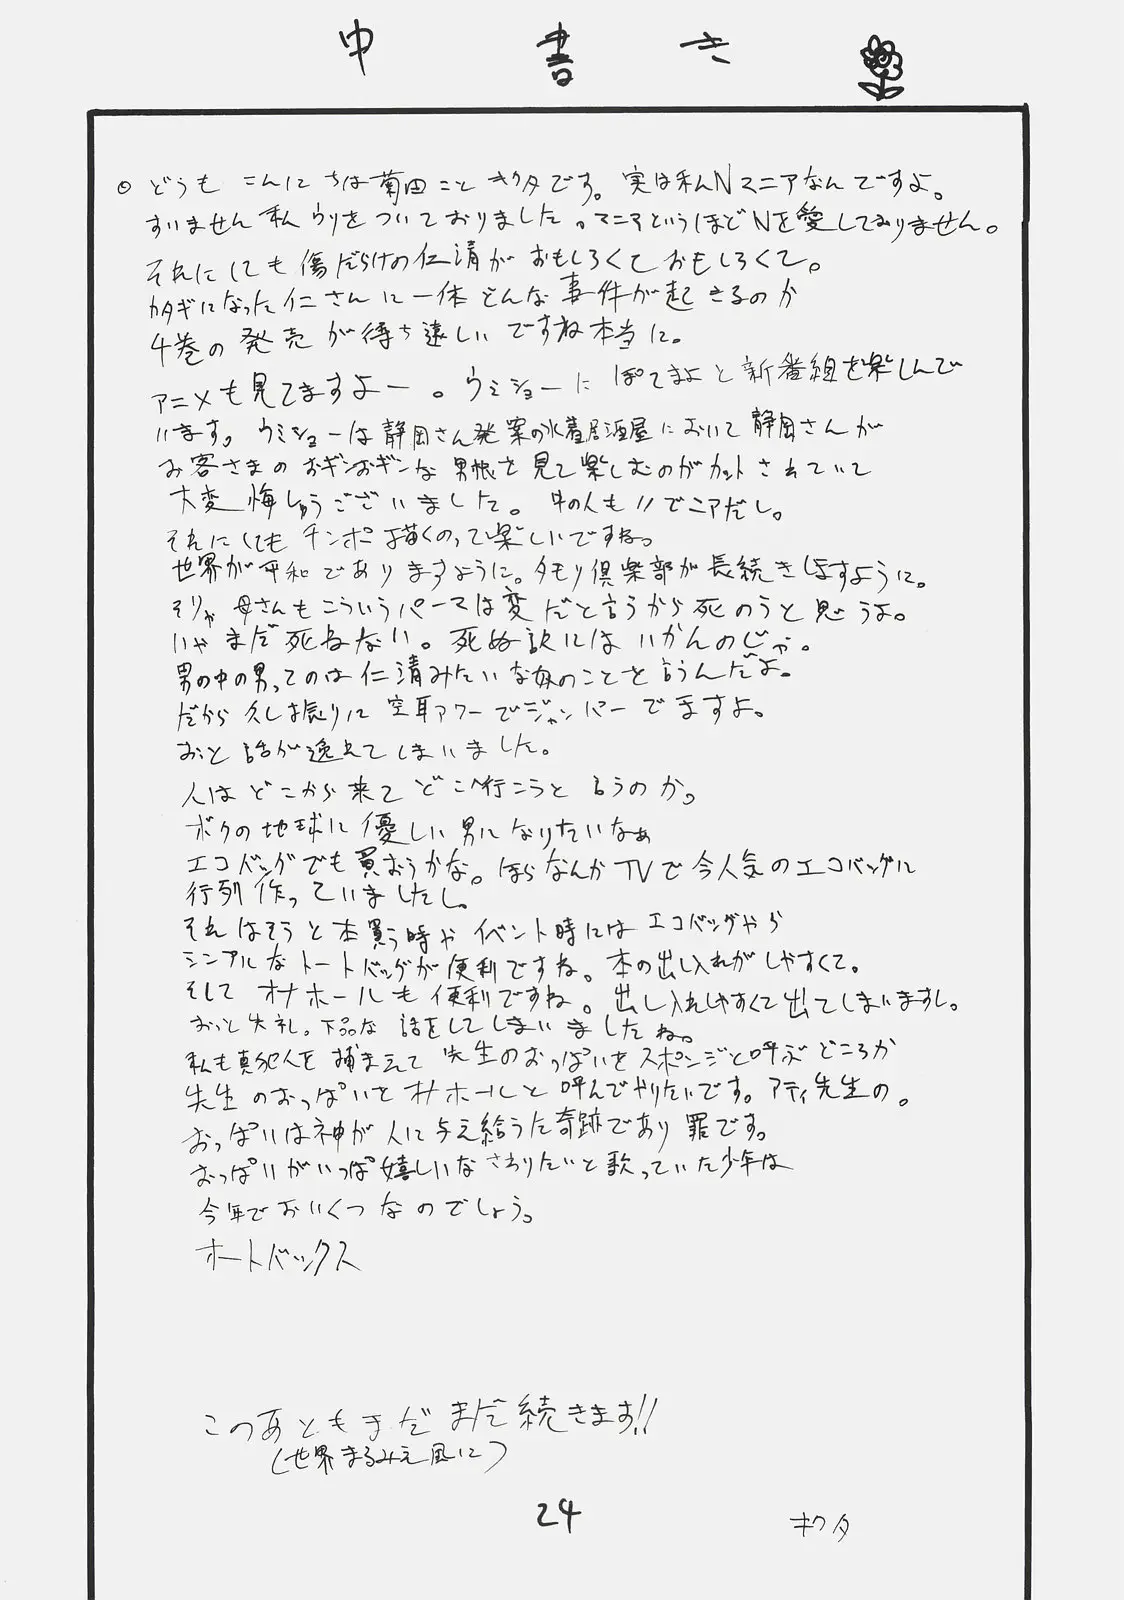 中書き
どうも こんにちは菊田こと キクタです。実は私Nマニアなんですよ。
すいません私ウリをついておりました。マニアというほどNを愛しておりません。
それにしても傷だらけの仁清がおもしろくておもしろくて。
カタギになった仁さんに一体どんな事件が起きるのか
4巻の発売が待ち遠しいですね本当に。
アニメも見てますよー。ウミショーにぽてまよと新番組を楽しんで
います。ウミショーは静岡さん発案の水着居酒屋において静岡さんが
お客さまのおギンおギンな男根を見て楽しむのがカットされていて
大変悔しゅうございました。牛の人も〃でニアだし。
それにしてもチンポ描くのって楽しいですねっ
世界が平和でありますように。タモリ倶楽部が長続きしますように。
そりゃ母さんもこういうパーマは変だと言うから死のうと思うよ。
いやまだ死ねない。死ぬ訳にはいかんのじゃ。
男の中の男ってのは仁清みたいな奴のことを言うんだよ。
だから久し振りに空耳アワーでジャンパーでますよ。
おっと話が逸れてしまいました。
人はどこから来てどこへ行こうと言うのか。
ボクの地球に優しい男になりたいなぁ
エコバッグでも買おうかな。ほらなんかTVで今人気のエコバッグに
行列作っていましたし。
それはそうと本買う時やイベント時にはエコバッグやら
シンプルなトートバッグが便利ですね。本の出し入れがしやすくて。
そしてオナホールも便利ですね。出し入れしやすくて出てしまいますし。
おっと失礼。下品な話をしてしまいましたね。
私も真犯人を捕まえて先生のおっぱいをスポンジと呼ぶどころか
先生のおっぱいをオナホールと呼んでやりたいです。アティ先生の。
おっぱいは神が人に与え給うた奇跡であり罪です。
おっぱいがいっぱ嬉しいなさわりたいと歌っていた少年は
今年でおいくつなのでしょう。
オートバックス
このあともまだまだ続きます!!
(世界まるみえ風に)
24
キクタ